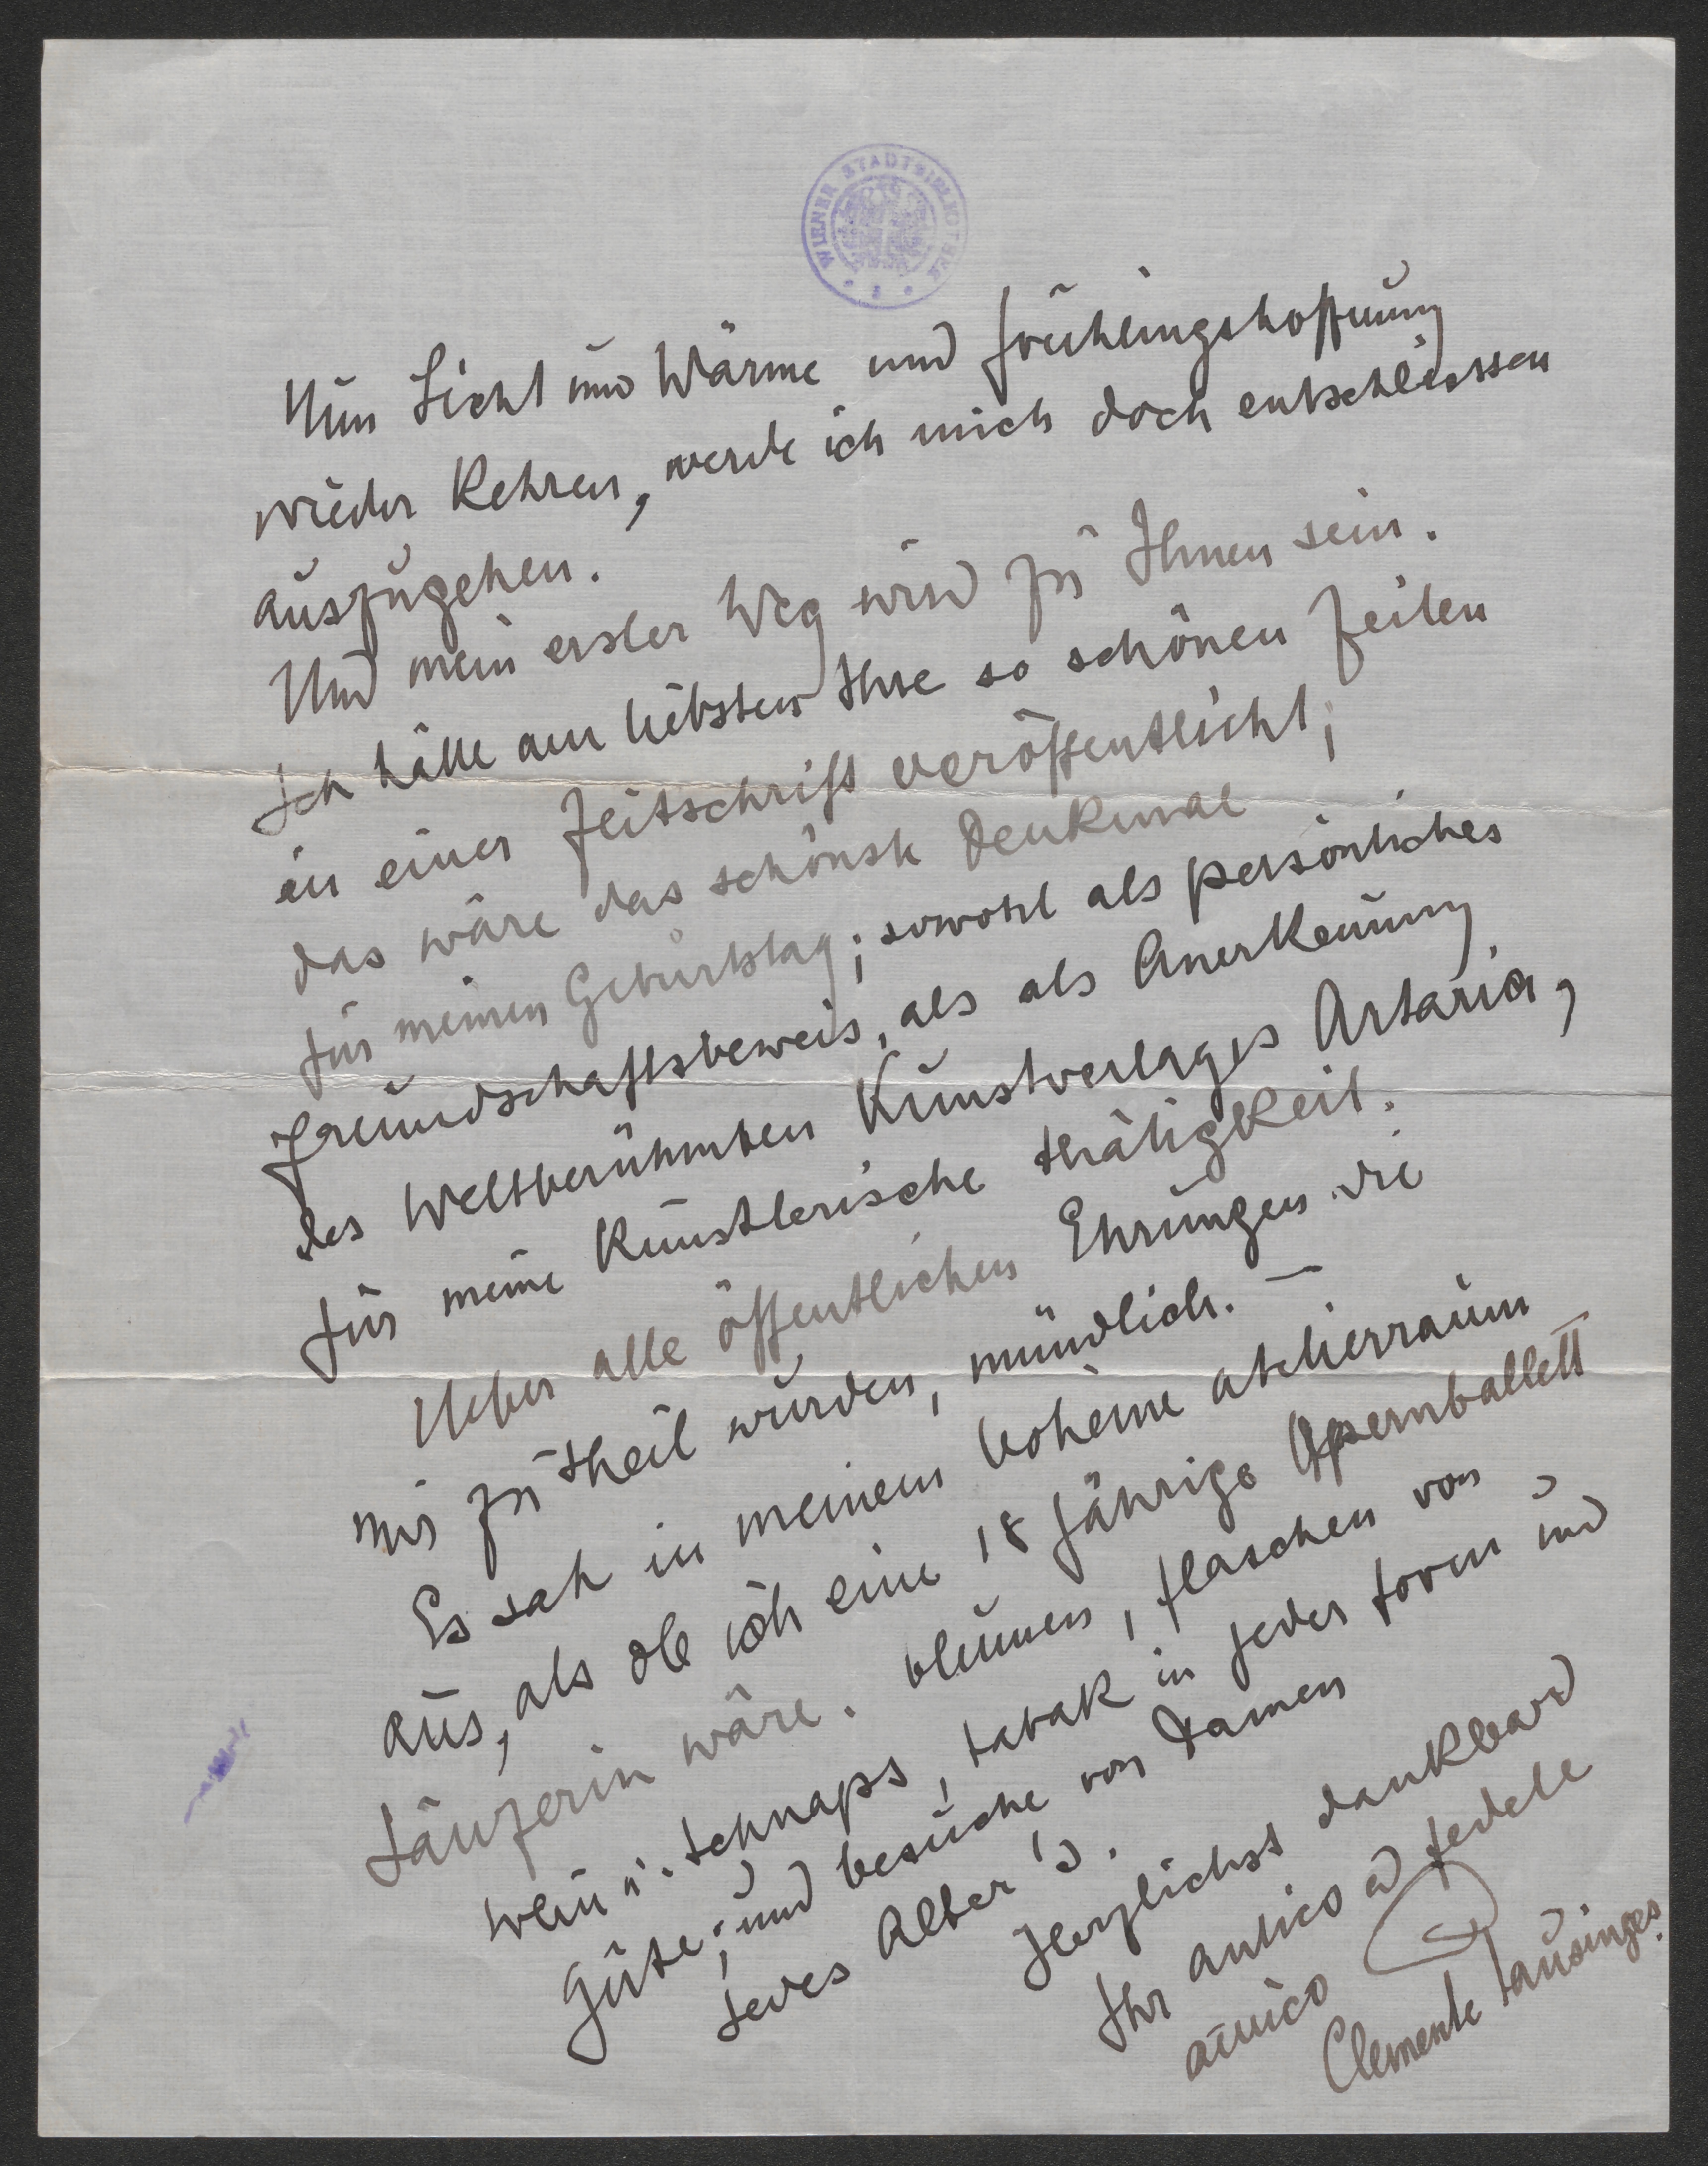 WIENER STADTBIBLIOTHEK
Nun Licht und Wärme und frühlingshoffnung
wieder kehren, werde ich mich doch entschliessen
auszugehen.
Und mein erster Weg wird zu Ihnen sein.
Ich hätte am liebsten Ihre so schönen Zeilen
in einer Zeitschrift veröffentlicht;
das wäre das schönste Denkmal
für meinen Geburtstag; sowohl als persönliches
freundschaftsbeweis, als als Anerkennung
des Weltberühmten Kunstverlages Artaria,
für meine künstlerische thätigkeit.
Ueber alle öffentlichen Ehrungen die
mir zu theil wurden, mündlich. —
Es sah in meinem bohème atelierraum
aus, als ob ich eine 18 jährige Opernballett
tänzerin wäre. blumen, flaschen von
wein u. schnaps, tabak in jeder form und
Güte; und besuche von Damen
jedes Alter's.
Herzlichst dankbard
Ihr antico ed fedele
amico
Clemente tausinger.